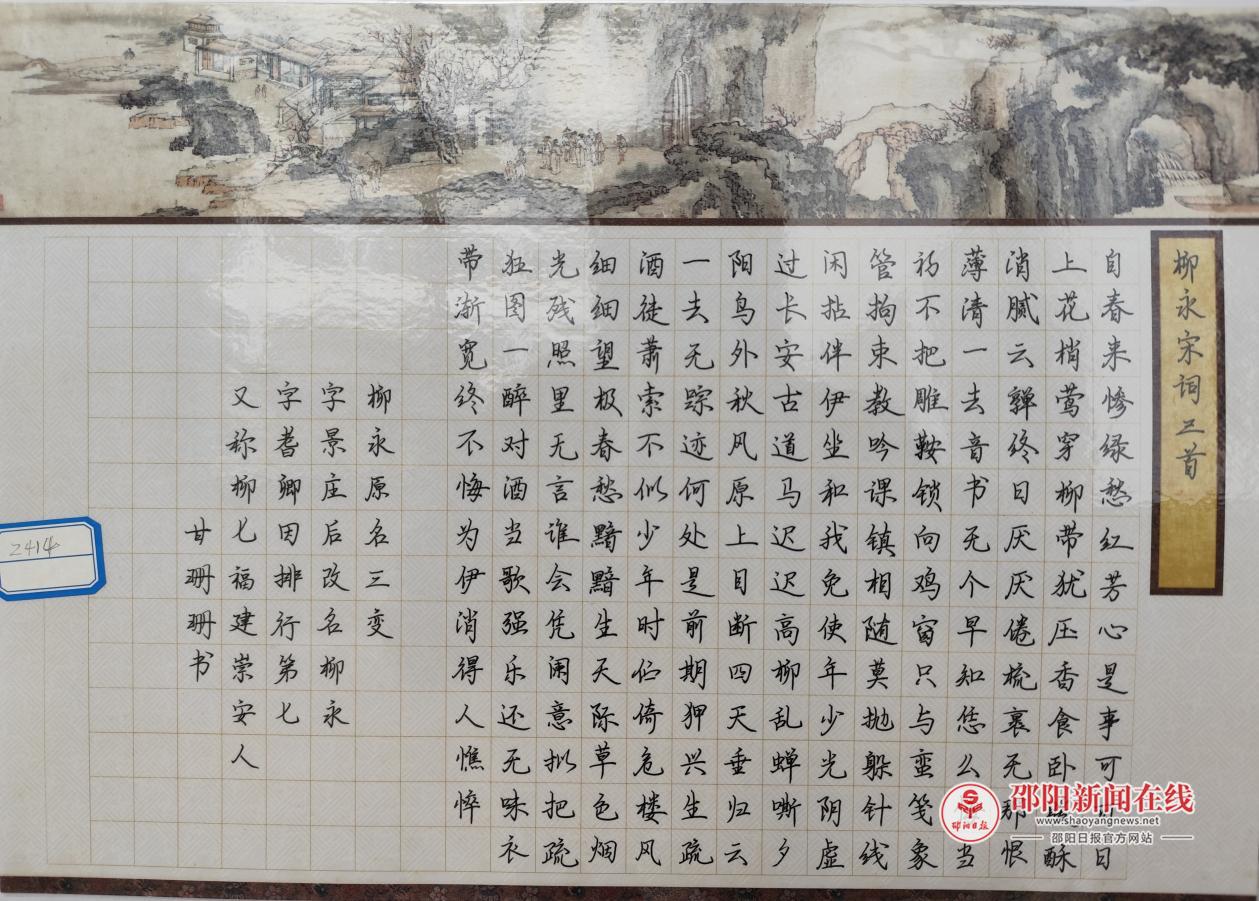 柳永宋词三首
自春来惨绿愁红芳心是事可日
上花梢莺穿柳带犹压香食卧酥
消腻云亸终日厌厌倦梳裹无那恨
薄清一去音书无个早知恁么当
初不把雕鞍锁向鸡窗只与蛮笺象
管拘束教吟课镇相随莫抛躲针线
闲拈伴伊坐和我免使年少光阴虚
过长安古道马迟迟高柳乱蝉嘶夕
阳鸟外秋风原上目断四天垂归云
一去无踪迹何处是前期狎兴生疏
酒徒萧索不似少年时伫倚危楼风
细细望极春愁黯黯生天际草色烟
光残照里无言谁会凭闲意拟把疏
狂图一醉对酒当歌强乐还无味衣
带渐宽终不悔为伊消得人憔悴
柳永原名三变
字景庄后改名柳永
字耆卿因排行第七
又称柳七福建崇安人
甘珊珊书
2414
邵阳日报
邵阳新闻在线
www.shaoyangnews.net
邵阳日报官方网站